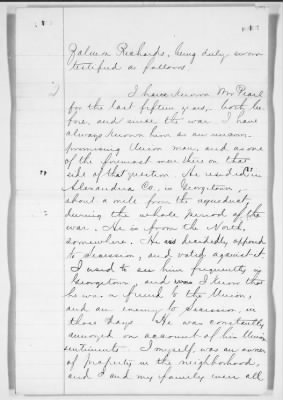 Zalmon Richards, being duly sworn
testified as follows
I have known Mr Pearl
for the last fifteen years, both be-
fore, and since the war. I have
always known him as an uncom-
promising Union man, and as one
of the foremost men there on that
side of that question. He resided in
Alexandria Co. in Georgetown,
about a mile from the aqueduct,
during the whole period of the
war. He is from the North,
somewhere. He was decidedly opposed
to secession, and voted against it.
I used to see him frequently in
Georgetown and I know that
he was a friend to the Union,
and an enemy to secession, in
those days. He was constantly
annoyed on account of his Union
sentiments. I myself, was an owner
of property in the neighborhood,
and I and my family were all